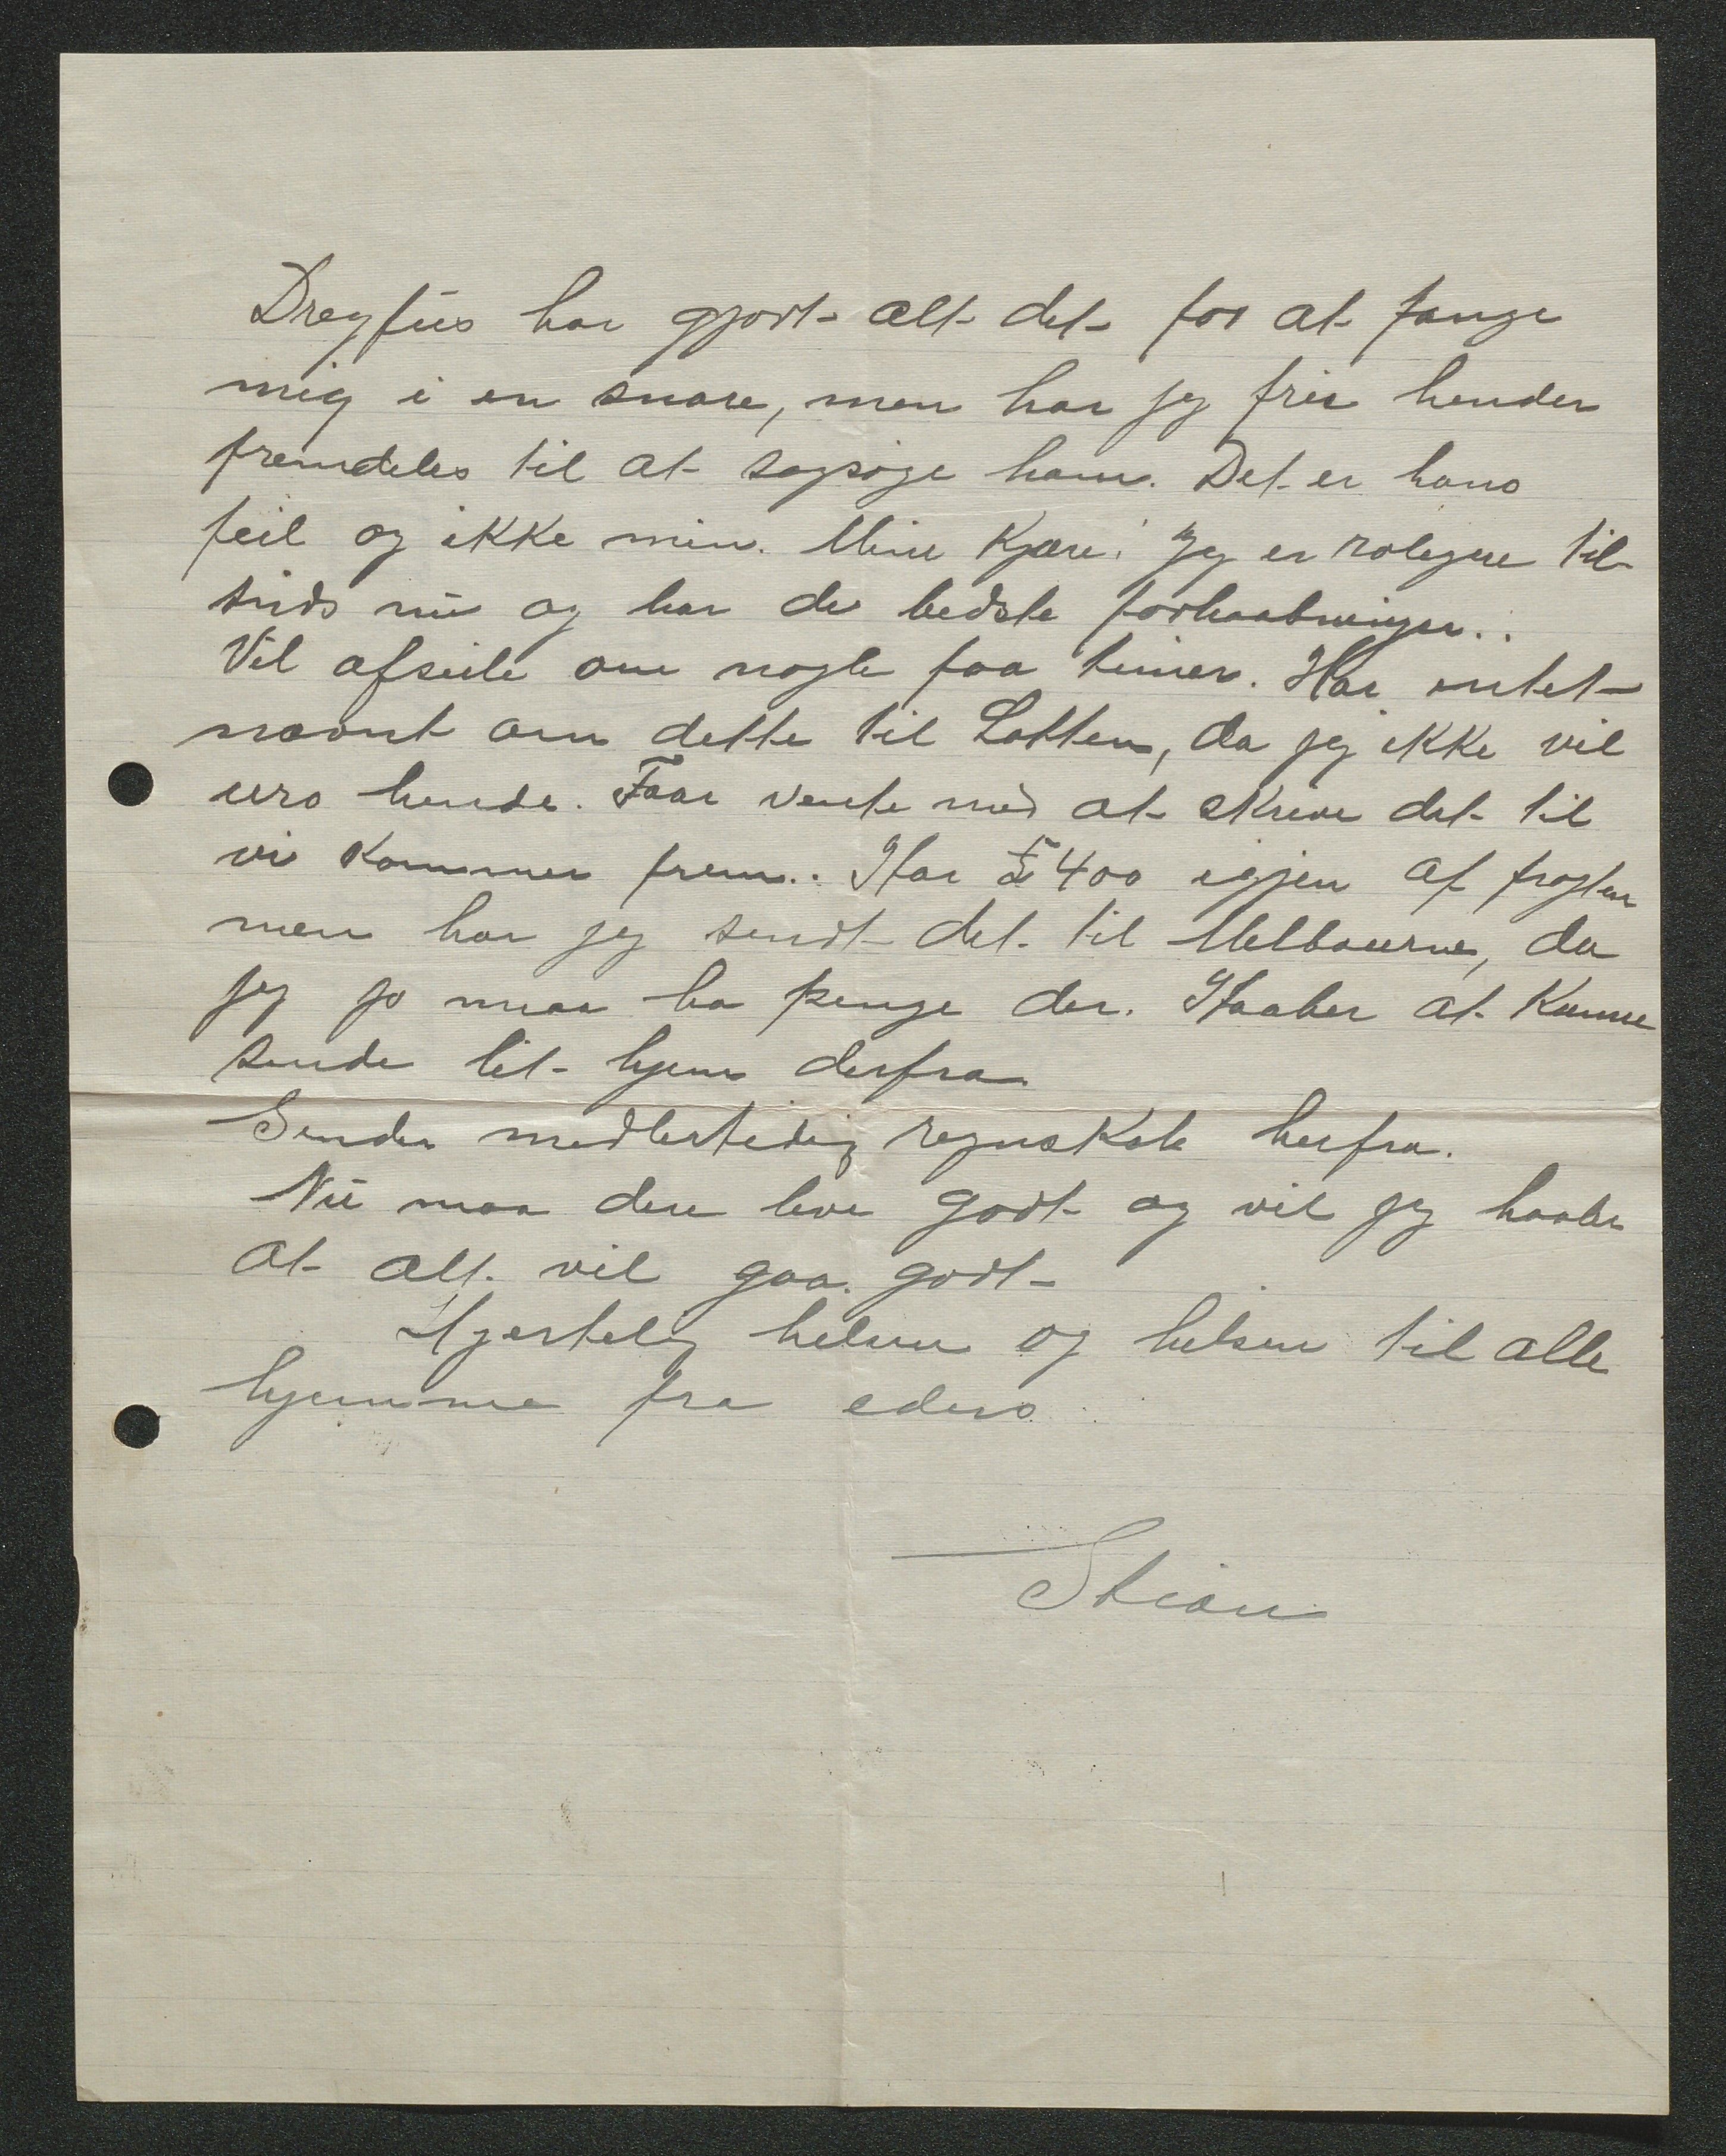 Dreyfus har gjort alt det for at fange
mig i en snare, men har jeg frie hender
fremdeles til at sagsøge ham. Det er hans
feil og ikke min. Mine Kjære! Jeg er roligere til-
sinds nu og har de bedste forhaabninger..
Vil afseile om nogle faa timer. Har intet
nævnt om dette til Lotten, da jeg ikke vil
uro hende. Faar vente med at skrive det til
vi kommer frem.. Har £ 400 igjen af fragten
men har jeg sendt det til Melbourne, da
jeg jo maa ha penge der. Haaber at Kunne
sende lit hjem derfra
Sender medlertidig regnskab herfra.
Nu maa dere leve godt og vil jeg haabe
at alt vil gaa godt
Hjertelig hilsen og hilsen til alle
hjemme fra eders
Stian